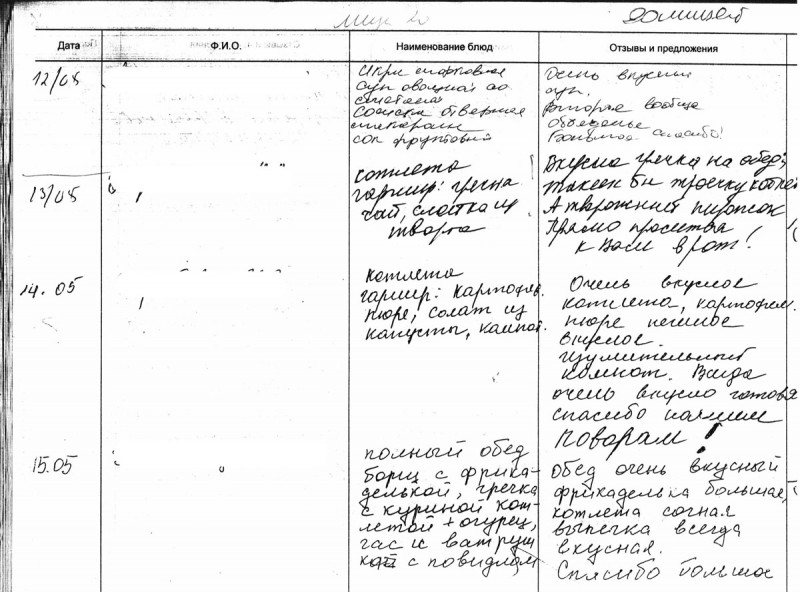 Дата Ф.И.О. Наименование блюд Отзывы и предложения
12/05
Икра морковная
суп овощной со
сметаной
Сосиска отверная
макароны
сок фруктовый
Очень вкусный
суп.
Второе вообще
объеденье
Большое спасибо!
13/05
котлета
гарнир: гречка
чай, слойка из
творга
Вкусно гречка на обед;
А творожний пирожок
Прямо просится
к Вам в рот!
14.05
котлета
гарнир: картофел.
пюре, солат из
капусты, компот.
Очень вкусное
котлета, картофел.
пюре нежное
вкусное.
изумительный
компот. Всегда
очень вкусно готовя
спасибо нашим
поворам!
15.05
полный обед
борщ с фрика-
делькой, гречка
с куриной кот-
летой + огурец,
чай и ватруш
кой с повидлом
обед очень вкусный
фрикаделька большая,
котлета сочная
выпечка всегда
вкусная.
Спасибо большое